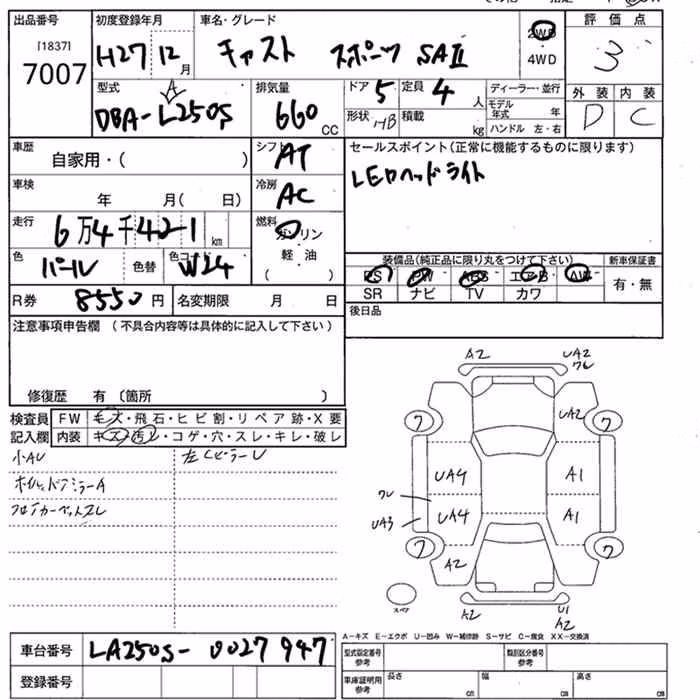 出品番号 初度登録年月 車名・グレード 評価点
[1837] 7007 H27 12月 キャスト スポーツ SAⅡ 2WD 4WD 3
型式 排気量 ドア 5 定員 4人 ディーラー・並行 外装 内装
DBA-LA250S 660 CC 形状 HB 積載 kg モデル年式 年 D C
ハンドル 左・右
車歴 自家用・( ) シフト AT セールスポイント(正常に機能するものに限ります)
車検 年 月( 日) 冷房 AC LEDヘッドライト
走行 6万4千421 km 燃料 ガソリン
軽油
色 パール 色替 色コード W24 ( )
装備品(純正品に限り丸をつけて下さい) 新車保証書
PS PW ABS エアB AW 有・無
R券 8550円 名変期限 月 日 SR ナビ TV カワ
注意事項申告欄 (不具合内容等は具体的に記入して下さい) 後日品
修復歴 有 (箇所 )
検査員 FW キズ・飛石・ヒビ割・リペア跡・X要
記入欄 内装 キズ・汚レ・コゲ・穴・スレ・キレ・破レ
小AU 左Cピラーし
ホイル、ドアミラーA
フロアカーペットスレ
A2 UA2
ワレ
UA2
ワ ワ
UA4 A1
ワレ
UA3 UA4 A1
ワ ワ
A2
スペア A2 U1
A2
A-キズ E-エクボ U-凹み W-補修跡 S-サビ C-腐食 XX-交換済
車台番号 LA250S-0027947 型式指定番号 参考 類別区分番号 参考
登録番号 車庫証明用 参考 長さ cm 幅 cm 高さ cm